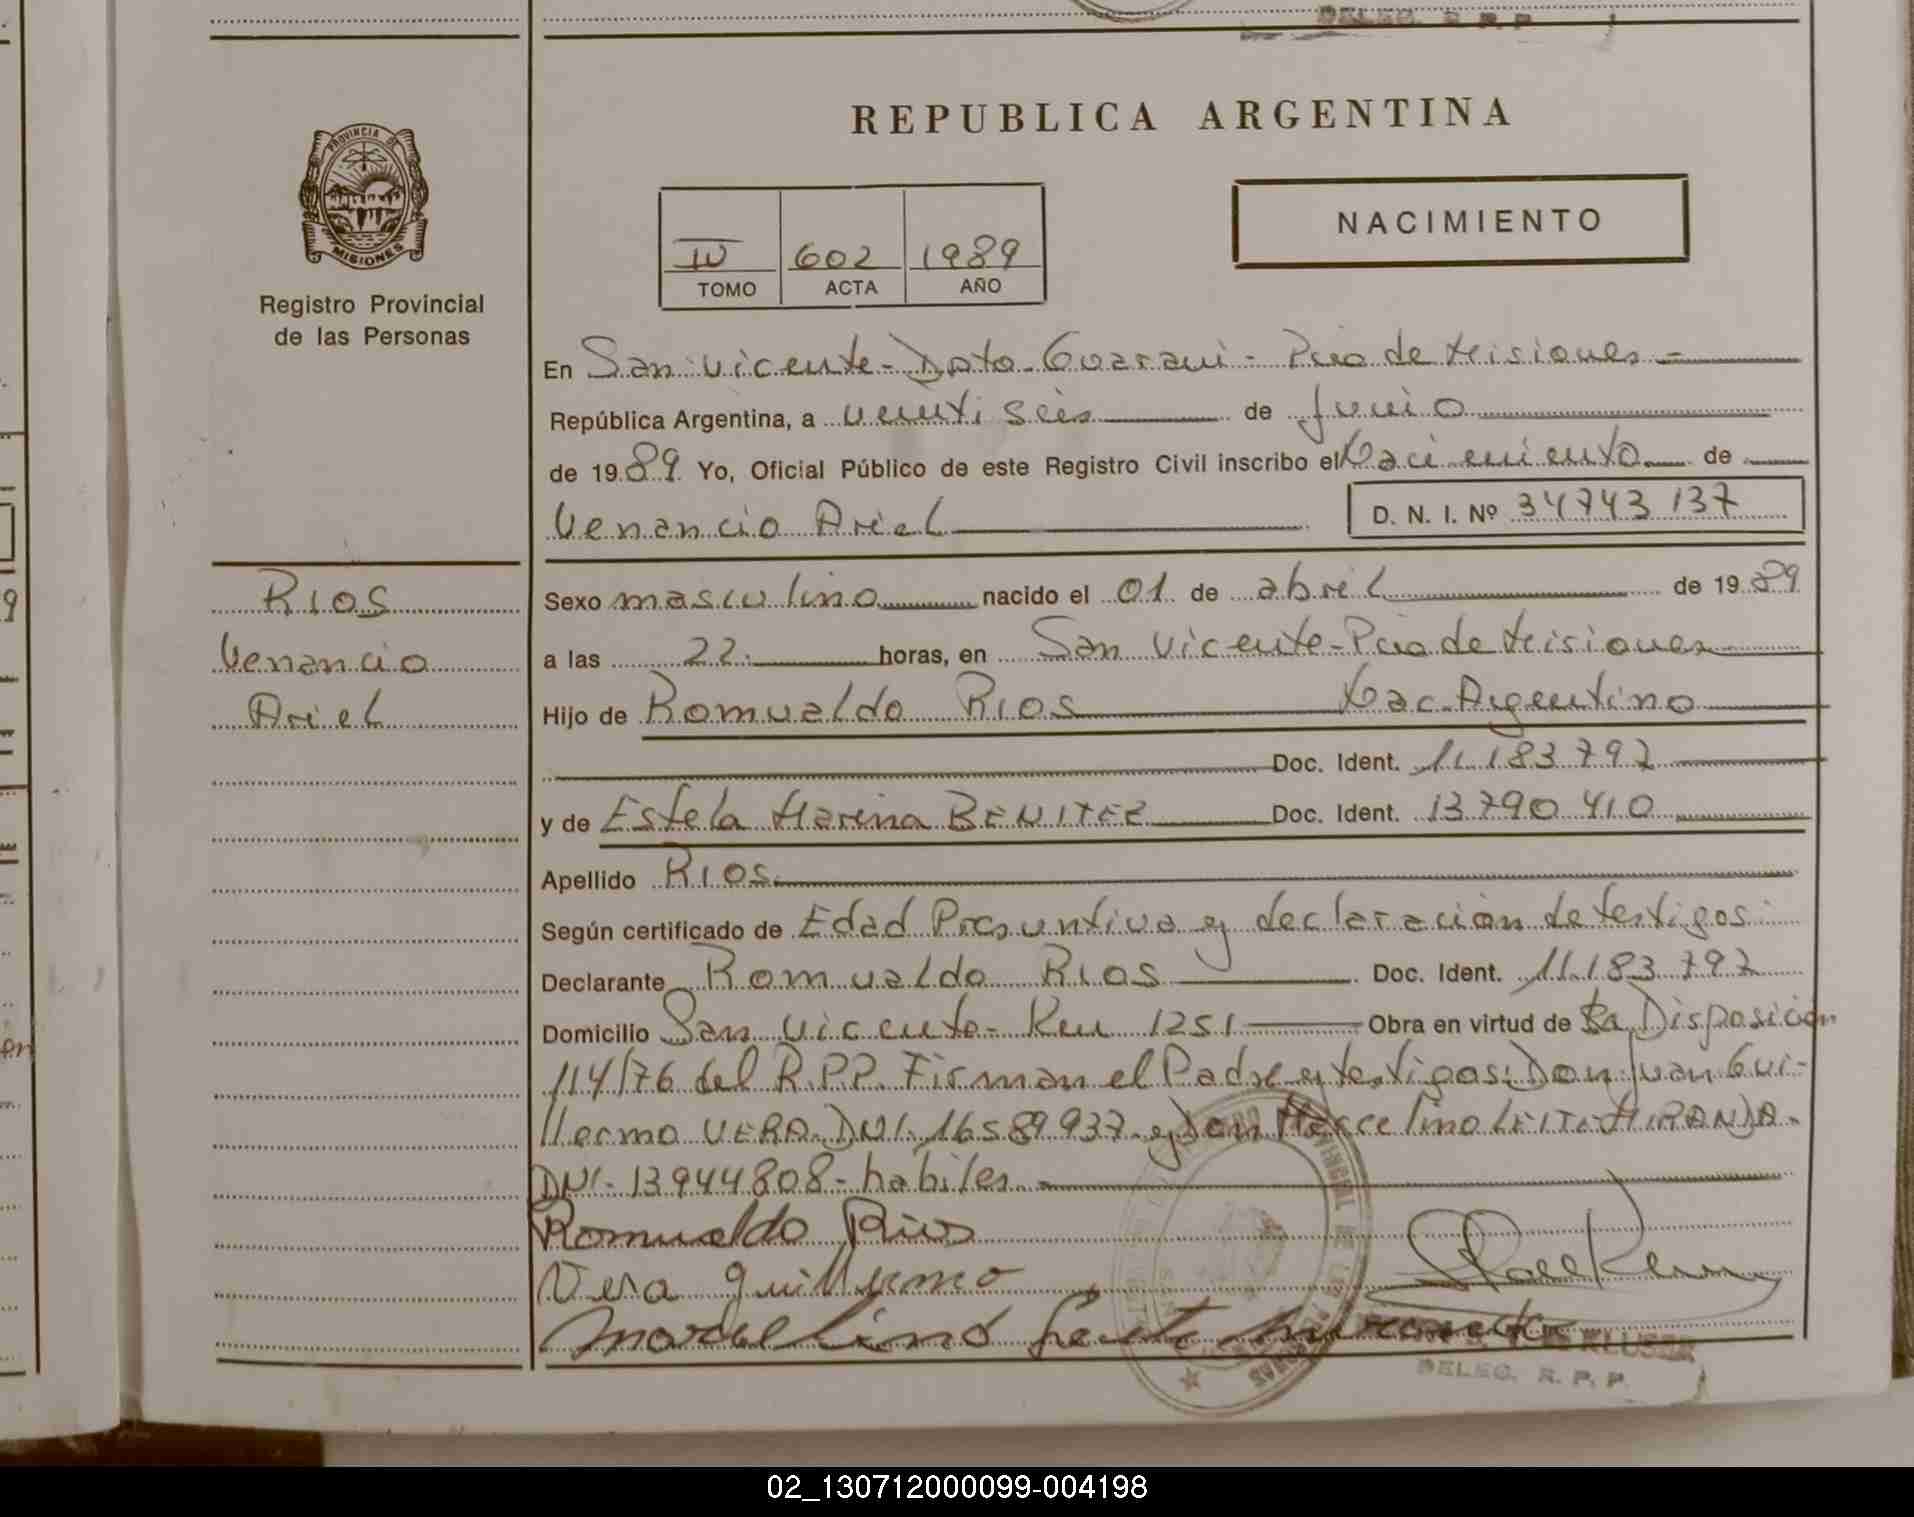 DELEG. R. P. P.
REPUBLICA ARGENTINA
PROVINCIA DE
MISIONES
Registro Provincial
de las Personas
NACIMIENTO
IV 602 1989
TOMO ACTA AÑO
En San Vicente - Dpto. Guarani - Pcia de Misiones -
República Argentina, a veinti seis de Junio
de 1989. Yo, Oficial Público de este Registro Civil inscribo el Nacimiento de
Venancio Ariel D. N. I. Nº 34743137
RIOS
Venancio
Ariel
Sexo masculino nacido el 01 de abril de 1989
a las 22. horas, en San Vicente - Pcia de Misiones
Hijo de Romualdo RIOS Nac. Argentino
Doc. Ident. 11.183.792
y de Estela Marina BENITEZ Doc. Ident. 13.790.410
Apellido RIOS.
Según certificado de Edad Presuntiva y declaración de testigos.
Declarante Romualdo RIOS Doc. Ident. 11.183.792
Domicilio San Vicente - Km 1251 Obra en virtud de la Disposición
114/76 del R.P.P. Firman el Padre y testigos: Don Juan Gui-
llermo VERA. DNI. 16589937 - y Don Marcelino LEITE MIRANDA -
DNI - 13944808 - habiles.
Romualdo Rios
Vera Guillermo
Marcelino Leite Miranda
KLUSER
DELEG. R. P. P.
02_130712000099-004198